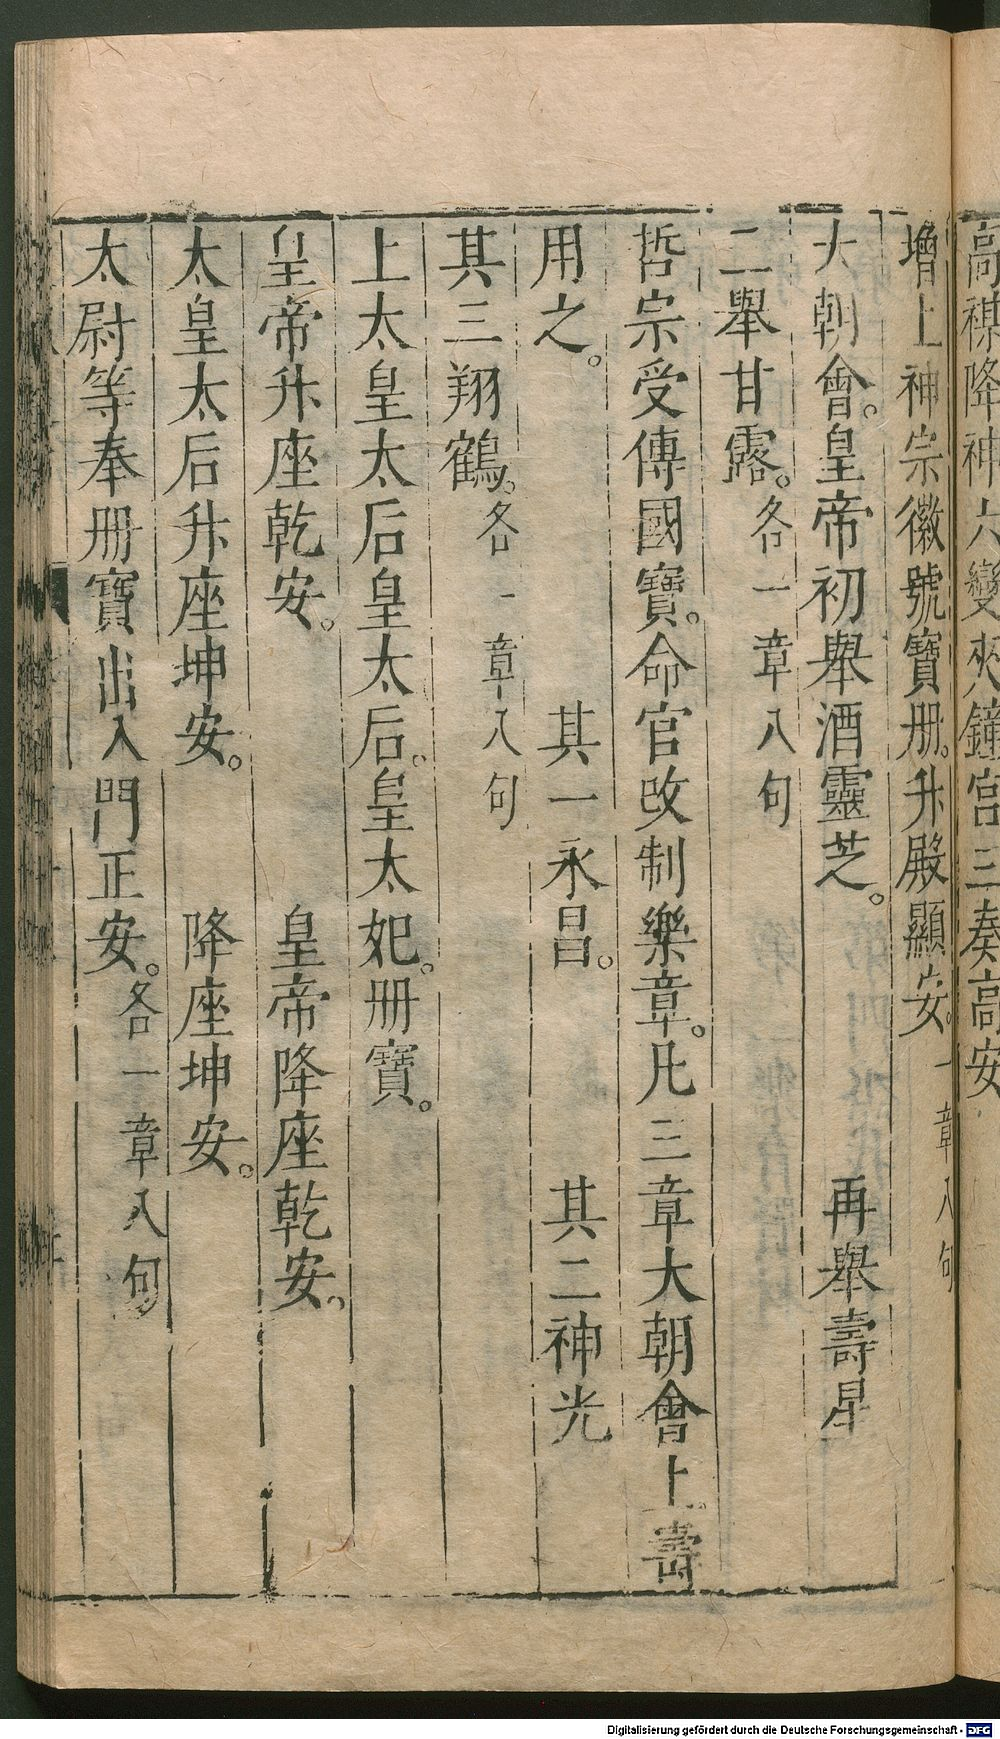 高禖降神六變夾鐘宮三奏高安
增上神宗徽號寶册。升殿顯安。一章八句
大朝會。皇帝初舉酒靈芝。 再舉壽星
三舉甘露。各一章八句
哲宗受傳國寶。命官改制樂章。凡三章大朝會上壽
用之。 其一永昌。 其二神光
其三翔鶴。各一章八句
上太皇太后皇太后。皇太妃。册寶。
皇帝升座乾安。 皇帝降座乾安。
太皇太后升座坤安。 降座坤安。
太尉等奉册寶出入門正安。各一章八句
Digitalisierung gefördert durch die Deutsche Forschungsgemeinschaft - DFG